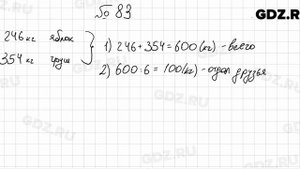 № 83
GDZ.R
246 кг яблок
354 кг груш
1) 246+354=600(кг) - всего
2) 600:6=100(кг) - отдал друзья
GDZ.RU